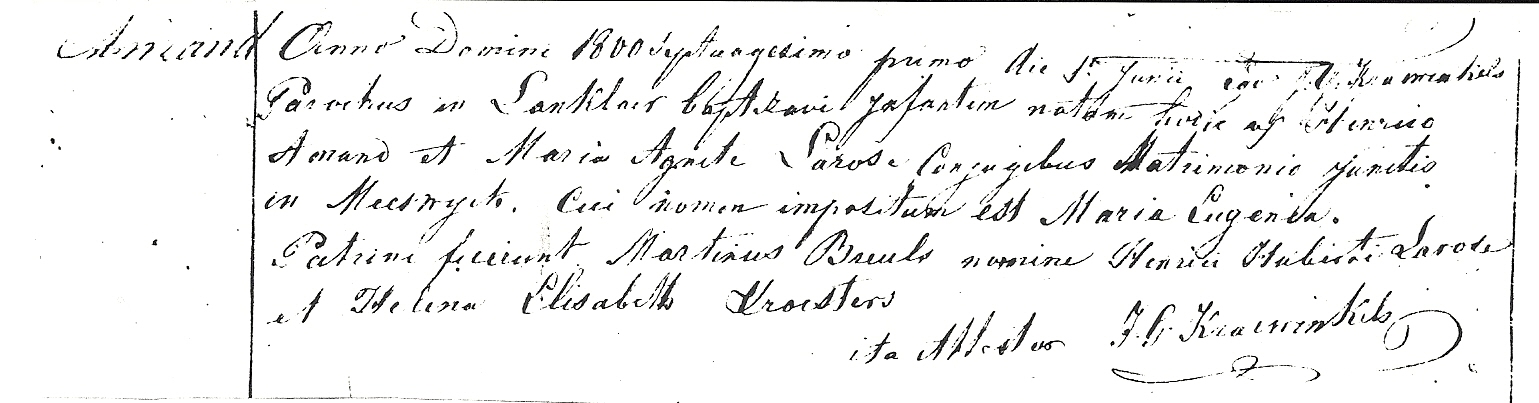 Amand
Anno Domini 1800 Septuagesimo primo die 1a Junii ego J. G. Kraewinkels
Parochus in Lanklaer baptizavi infantem natam hodie ex Henrico
Amand et Maria Agnete Larose Conjugibus Matrimonio junctis
in Meeswyck. Cui nomen impositum est Maria Eugenia.
Patrini fuerunt Martinus Breuls nomine Henrici Huberti Larose
et Helena Elisabeth Kroesters
ita Attestor J. G. Kraewinkels